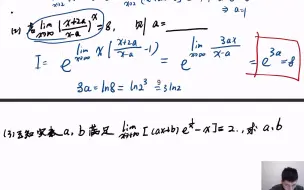 ⇒ a=1
(2) 若 lim_{x→∞} (x+2a / x-a)^x = 8, 则 a = ______
I = e^{lim_{x→∞} x (x+2a / x-a - 1)} = e^{lim_{x→∞} 3ax / x-a} = e^{3a} = 8
3a = ln8 = ln2^3 = 3ln2
(3) 已知实数 a, b 满足 lim_{x→∞} [(ax+b) e^{1/x} - x] = 2., 求 a, b